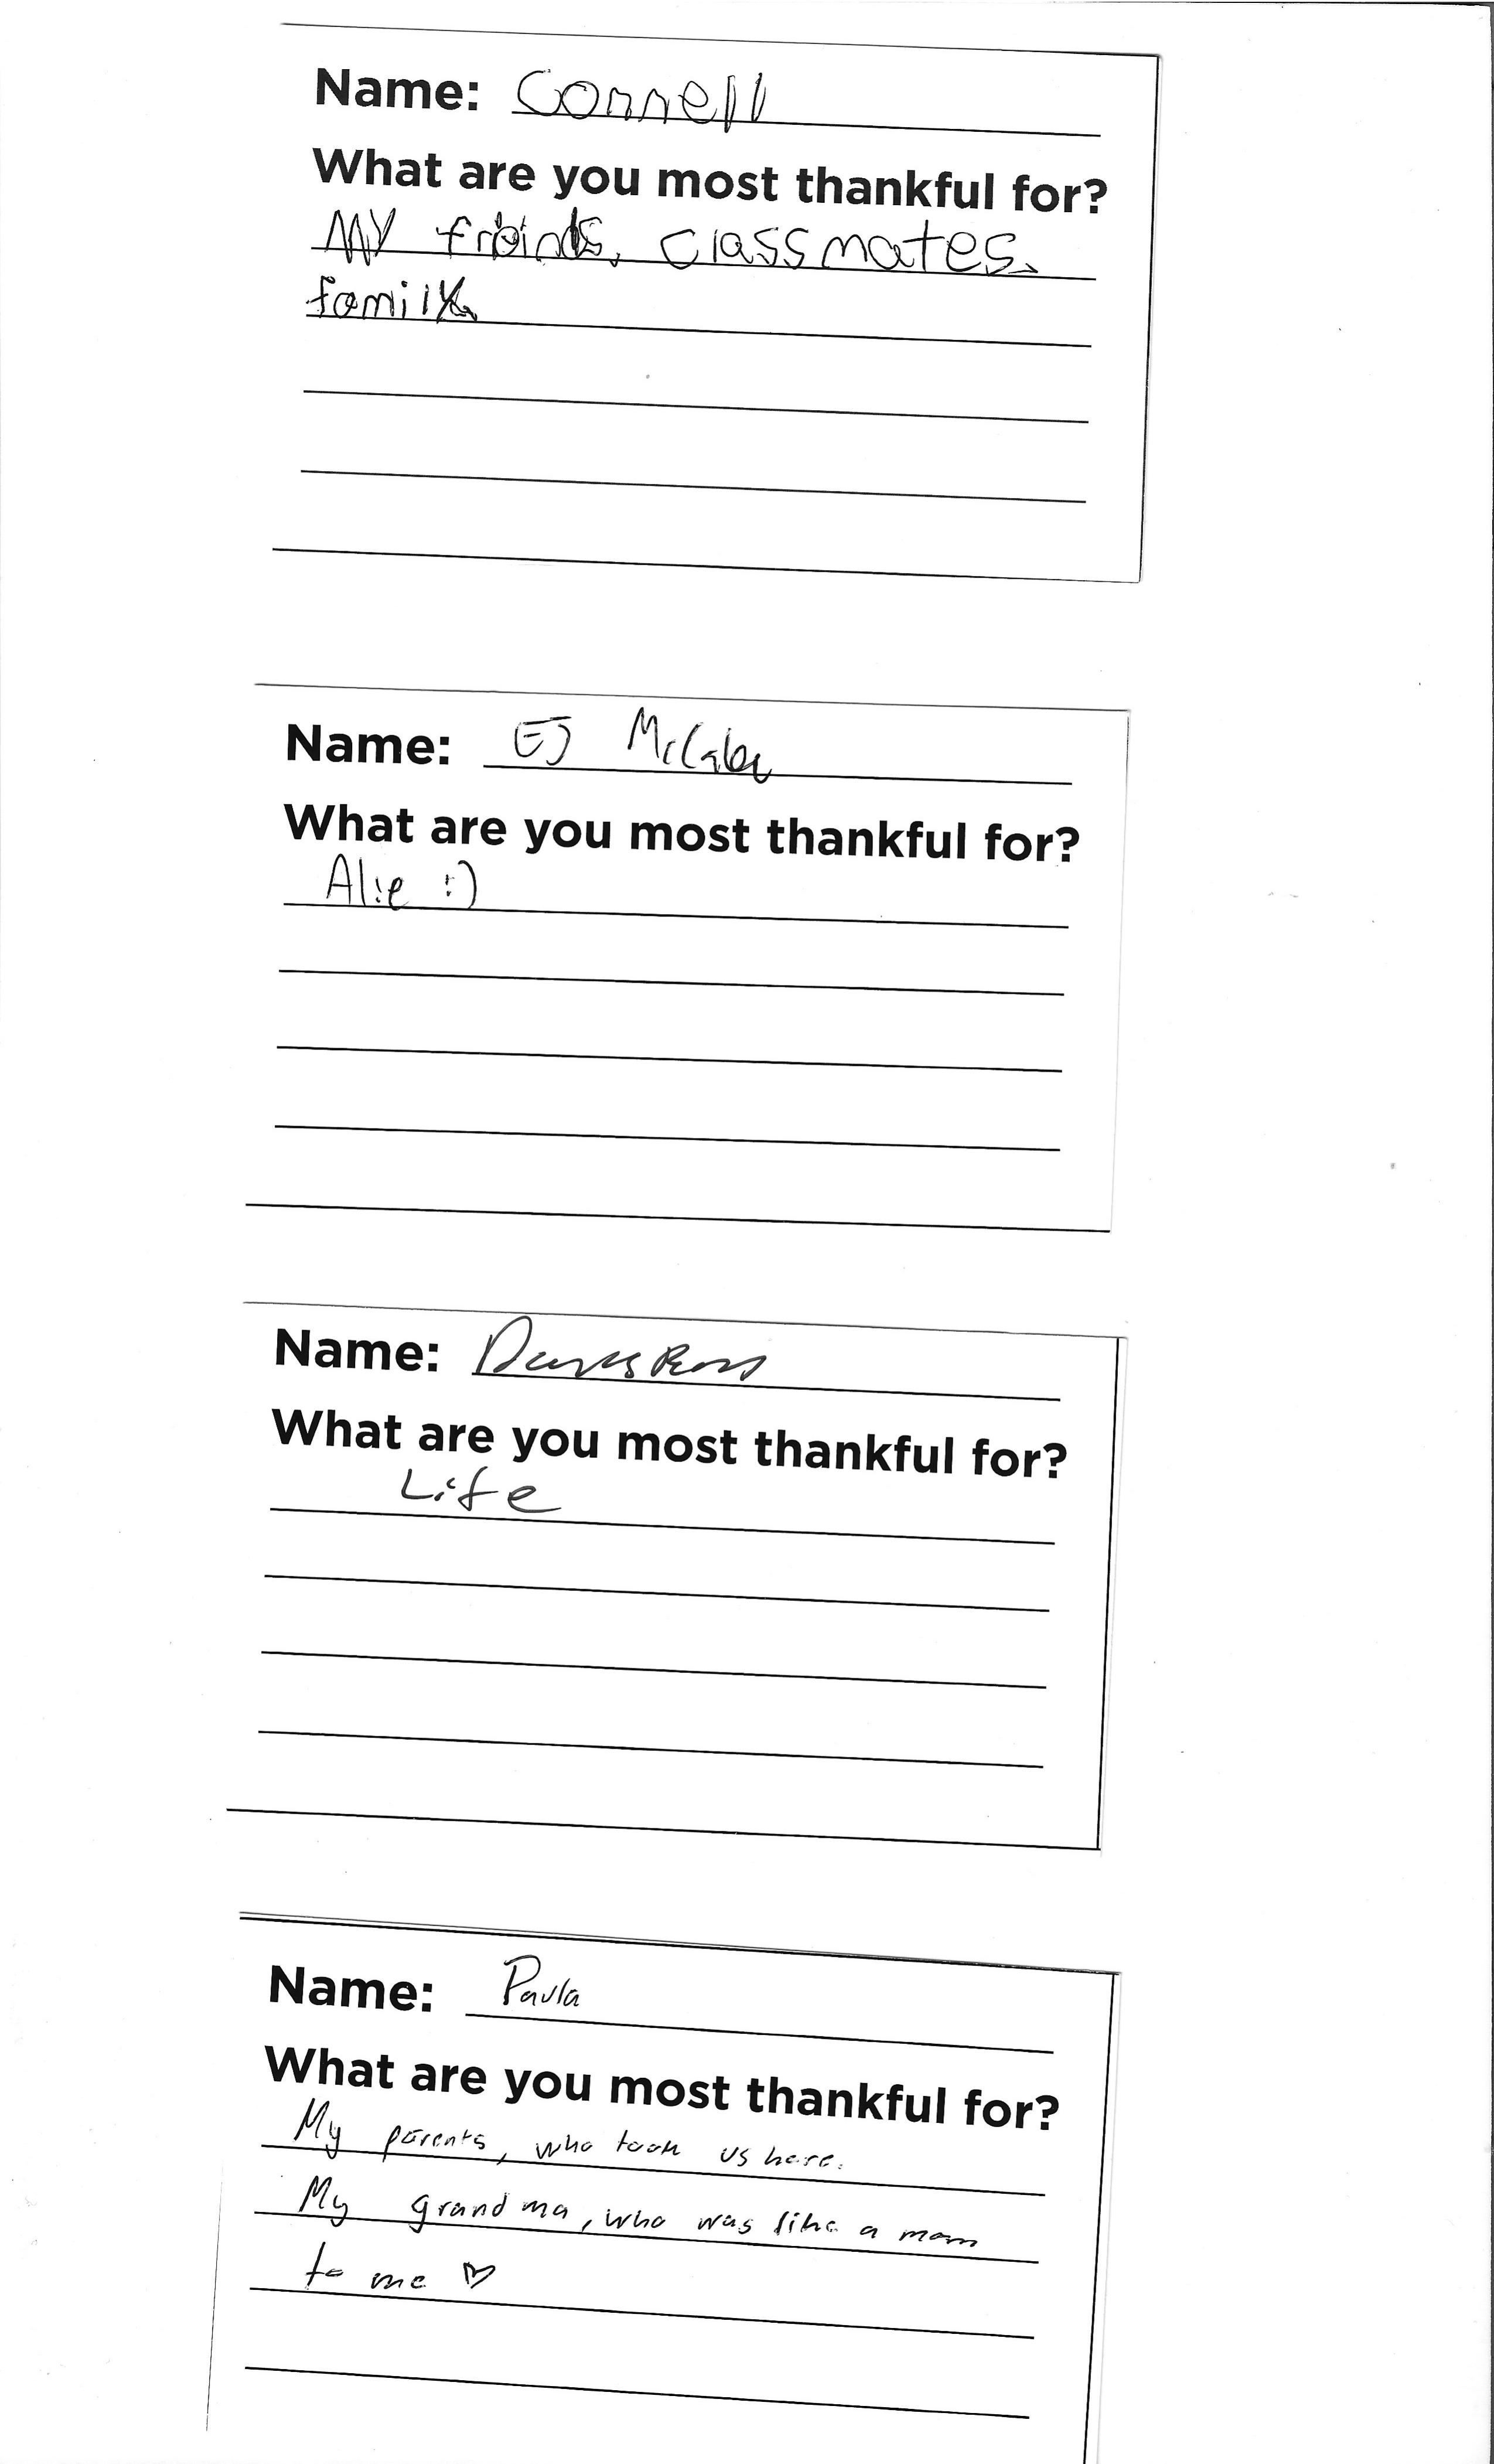 Name: Connell
What are you most thankful for?
MY froinds, classmates,
family.
Name: EJ McCabe
What are you most thankful for?
Alie :)
Name:
What are you most thankful for?
Life
Name: Paula
What are you most thankful for?
My parents, who took us here.
My grandma, who was like a mom
to me ♡